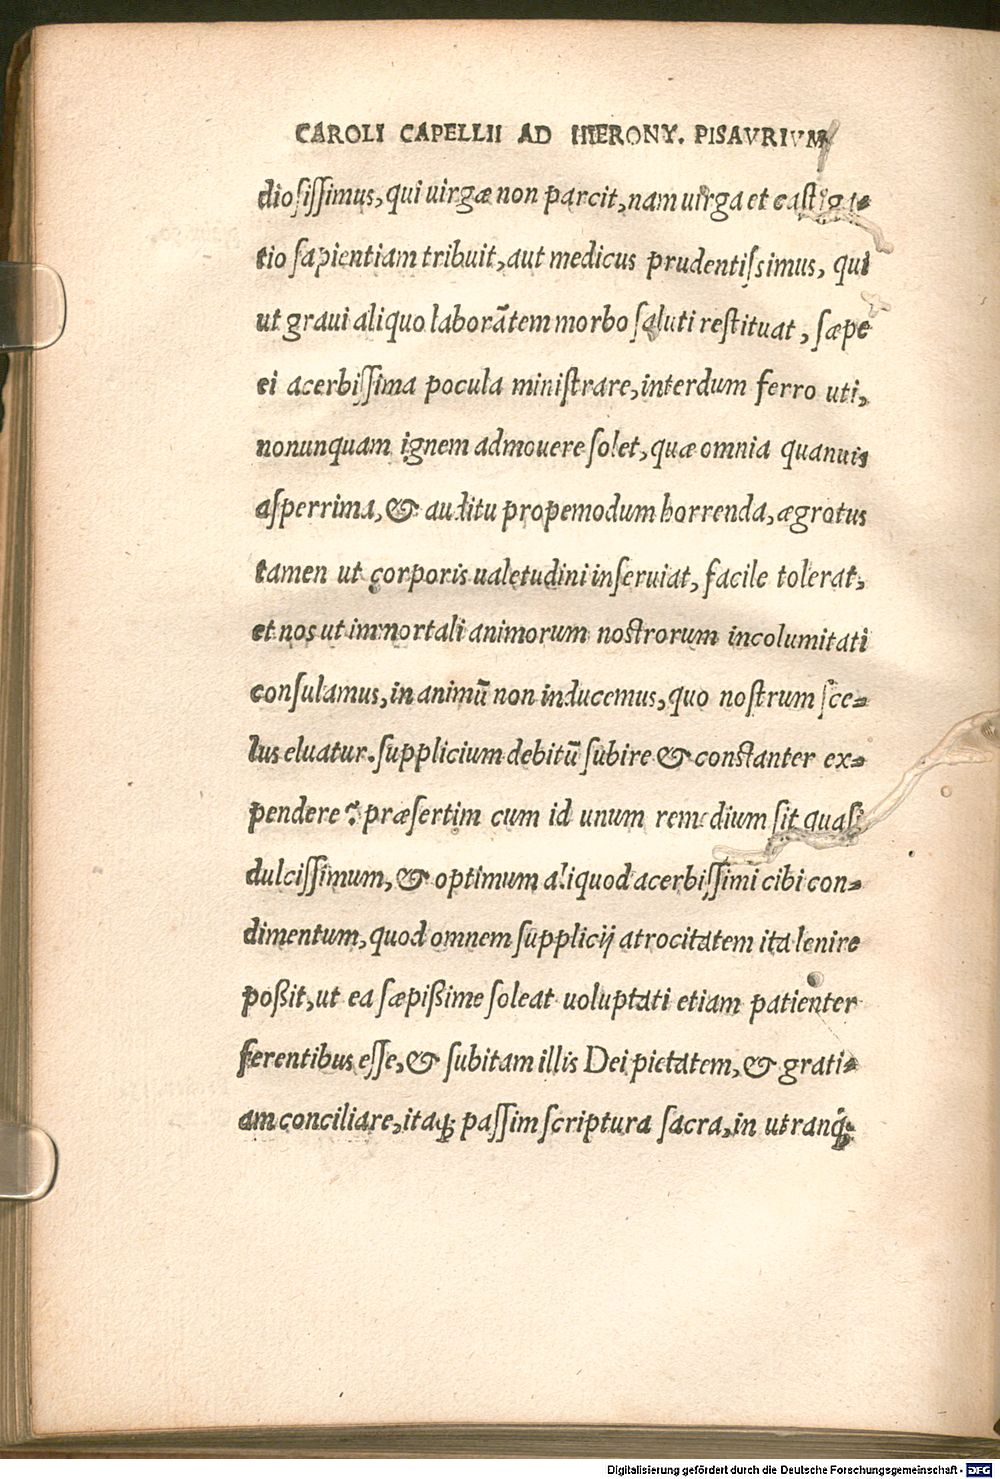 CAROLI CAPELLII AD HIERONY. PISAVRIVM
diosissimus, qui uirgæ non parcit, nam uirga et castiga=
tio sapientiam tribuit, aut medicus prudentissimus, qui
ut graui aliquo laborãtem morbo saluti restituat, sæpe
ei acerbissima pocula ministrare, interdum ferro uti,
nonunquam ignem admouere solet, quæ omnia quanuis
asperrima, & auditu propemodum horrenda, ægrotus
tamen ut corporis ualetudini inseruiat, facile tolerat,
et nos ut immortali animorum nostrorum incolumitati
consulamus, in animũ non inducemus, quo nostrum sce=
lus eluatur. supplicium debitũ subire & constanter ex=
pendere? præsertim cum id unum remedium sit quasi
dulcissimum, & optimum aliquod acerbissimi cibi con=
dimentum, quod omnem supplicij atrocitatem ita lenire
poßit, ut ea sæpißime soleat uoluptati etiam patienter
ferentibus esse, & subitam illis Dei pietatem, & grati=
am conciliare, itaq; passim scriptura sacra, in utranq;
Digitalisierung gefördert durch die Deutsche Forschungsgemeinschaft - DFG